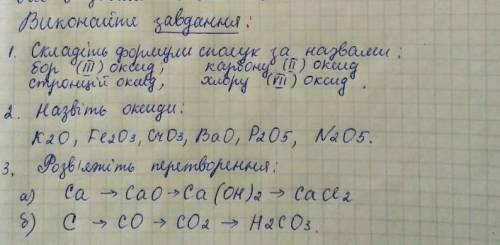 Виконайте завдання:
1. Складіть формули сполук за назвами:
бор (III) оксид; карбону (II) оксид
стронцій оксид, хлору (VII) оксид.
2. Назвіть оксиди:
K2O, Fe2O3, CrO3, BaO, P2O5, N2O5.
3. Розв'яжіть перетворення:
а) Ca → CaO → Ca(OH)2 → CaCl2
б) C → CO → CO2 → H2CO3.